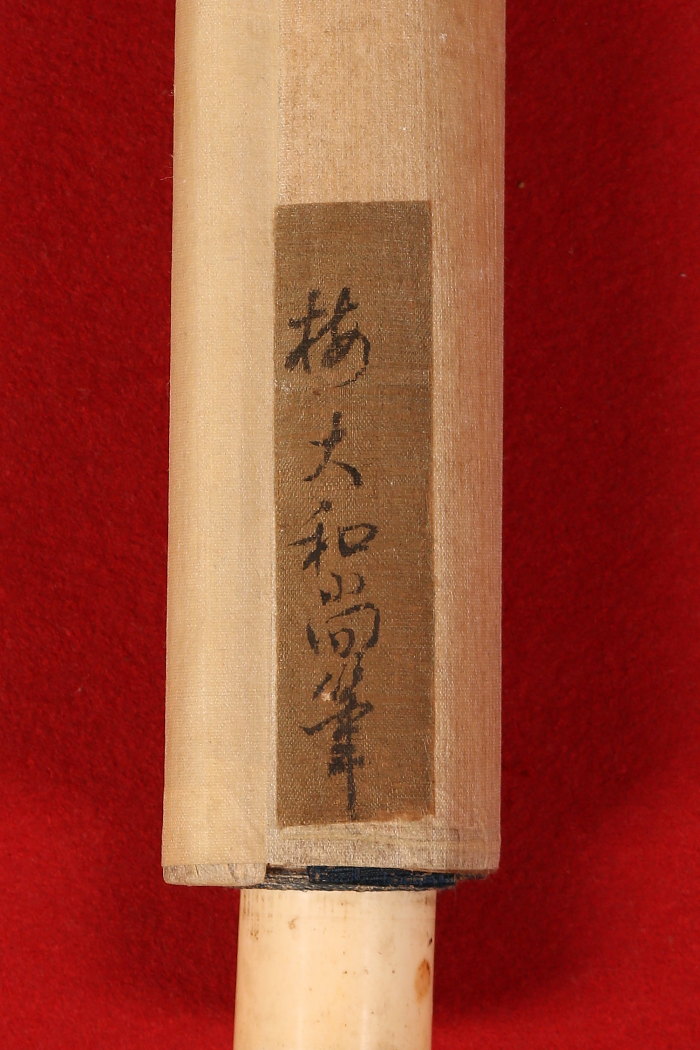 梅大和尚筆